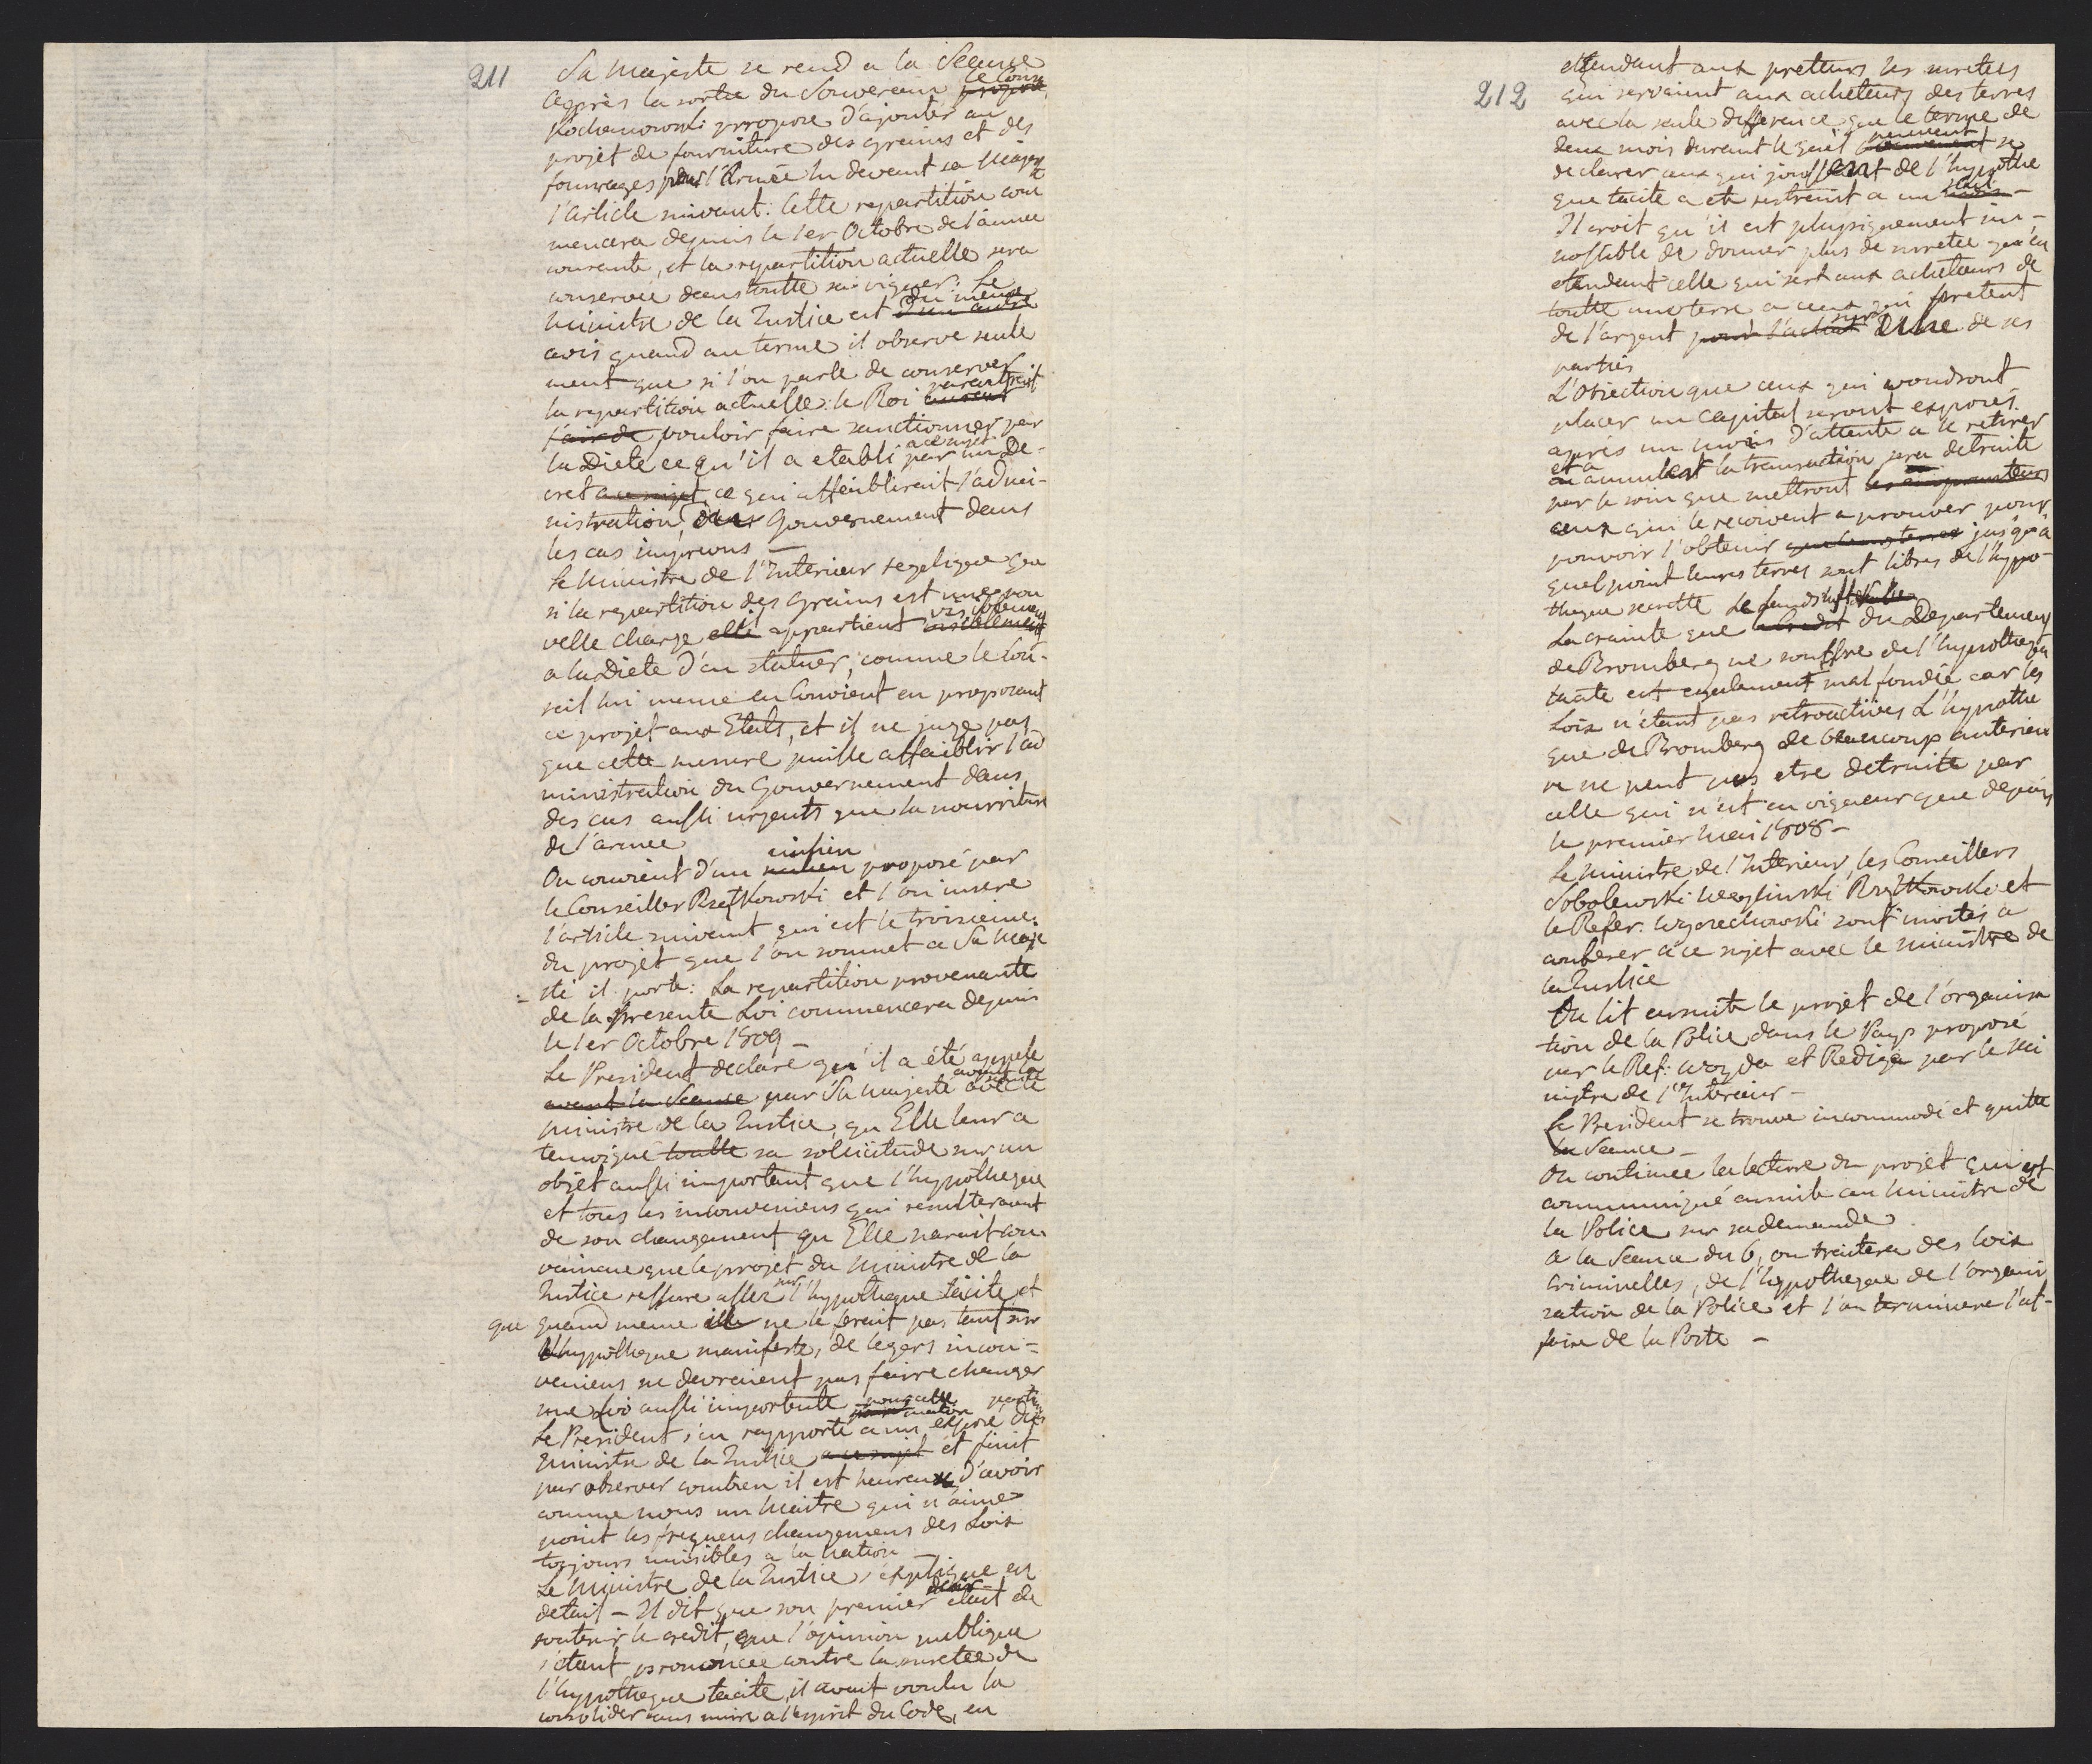 211
Sa Majesté se rend a la Séance
Après la sortie du Souverain le Cons
Kochanowski propose d'ajouter au
projet de fourniture des grains et des
fourrages pour l'Armée lu devant sa Majes
té
l'article suivant: Cette repartition com
mencera depuis le 1er Octobre de l'année
courante, et la repartition actuelle sera
conservée dans toutte sa vigueur: Le
Ministre de la Justice est du meme
d'un autre
avis quand au terme il observe seule
ment que si l'on parle de conserver
la repartition actuelle: le Roi paraitroit
l'air de pouloir faire sanctionner par
la Diete ce qu'il a etabli a ce sujet par un De-
cret a ce sujet, ce qui affoiblirait l'admi-
nistration du Gouvernement dans
les cas imprevus —
Le Ministre de l'Interieur replique que
si la repartition des grains est une nou
velle charge elle appartient visiblement
a la Diete d'en statuer, comme le Con-
seil lui meme en Convient en proposant
ce projet aux Etats, et il ne juge pas
que cette mesure puisse affaiblir l'ad
ministration du Gouvernement dans
des cas aussi urgents que la nourriture
de l'armee
On convient d'un milieu proposé par
le Conseiller Rzętkowski et l'on insere
l'article suivant qui est le troisieme
du projet que l'on soumet a Sa Maje
=sté il porte: La repartition provenante
de la presente Loi commencera depuis
le 1er Octobre 1809 —
Le President declare qu'il a été appelé
avant la Seance par Sa Majesté avec le
avant la seance
ministre de la Justice, qu Elle leur a
temoigné toutte sa solicitude sur un
objet aussi important que l'hypotheque
et tous les inconveniens qui resulteraient
de son changement qu Elle parait con-
vaincue que le projet du Ministre de la
Justice rassure assez sur l'hypotheque tacite, et
que quand meme elle ne le serait pas tant sur
l'hypotheque manifeste, de legers incon=
veniens ne devraient pas faire changer
une Loi aussi importante pour cette partie
Le President s'en rapporte a un exposé du
Ministre de la Justice a ce sujet et finit
par observer combien il est heureux d'avoir
comme nous un Maitre qui n'aime
point les frequens changemens des Loix
toujours nuisibles a la Nation
Le Ministre de la Justice s'explique en
detail — Il dit que son premier desir etait de
soutenir le credit, que l'opinion publique
s'étant prononcée contre la suretée de
l'hypotheque tacite, il avait voulu la
consolider sans nuire a l'esprit du Code, en
212
etendant aux preteurs les suretés
qui servaient aux acheteurs des terres
avec la seule difference que le terme de
deux mois durant lequel peuvent se
declarer ceux qui jouissent de l'hypothe
que tacite a eté restreint a un seul —
Il croit qu'il est physiquement im-
possible de donner plus de suretée qu'en
etendant celle qui sert aux acheteurs de
toutte une terre a ceux qui pretent
de l'argent pour l'achat sur une de ses
parties
L'objection que ceux qui voudront
placer un capital seront exposés
après un mois d'attente a le retirer
et a annulant la transaction sera detruite
par le soin que mettront les emprunteurs
ceux qui le recoivent a prouver pour
pouvoir l'obtenir que leurs terres jusqu'à
quel point leurs terres sont libres de l'hypo-
theque secrette
La crainte que le Credit du Departement
de Bromberg ne souffre de l'hypotheque
tacite est egalement mal fondée car les
Loix n'étant pas retroactives L'hypothe
que de Bromberg de beaucoup anterieu
re ne peut pas etre detruite par
celle qui n'est en vigueur que depuis
le premier Mai 1808 —
Le Ministre de l'Interieur, les Conseillers
Sobolewski Węgliński Rzętkowski et
le Refer: Wyczechowski sont invités a
conferer a ce sujet avec le Ministre de
la Justice
On lit ensuite le projet de l'organisa
tion de la Police dans le Pays proposé
par le Ref: Woyda et Redigé par le Mi
nistre de l'Interieur —
Le President se trouve incommodé et quitte
la Seance —
On continue la lecture du projet qui est
communiqué ensuite au Ministre de
la Police sur sa demande
A la Seance du 6, on traitera des loix
criminelles, de l'hypotheque de l'organi
sation de la Police et l'on terminera l'af-
faire de la Poste —